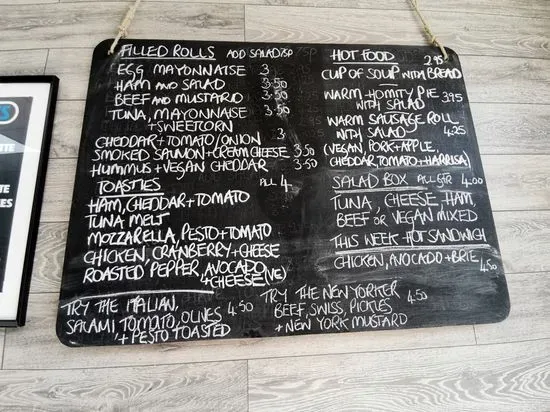 FILLED ROLLS ADD SALAD 75P
EGG MAYONNAISE 3
HAM AND SALAD 3.50
BEEF AND MUSTARD 3.50
TUNA, MAYONNAISE
+ SWEETCORN
CHEDDAR + TOMATO/ONION 3
SMOKED SALMON + CREAM CHEESE 3.50
HUMMUS + VEGAN CHEDDAR 3.50
TOASTIES ALL 4
HAM, CHEDDAR + TOMATO
TUNA MELT
MOZZARELLA, PESTO + TOMATO
CHICKEN, CRANBERRY + CHEESE
ROASTED PEPPER, AVOCADO
+ CHEESE (VG)
TRY THE ITALIAN, 4.50
SALAMI TOMATO, OLIVES
+ PESTO TOASTED
HOT FOOD 2.95
CUP OF SOUP WITH BREAD
WARM HOMITY PIE 3.95
WITH SALAD
WARM SAUSAGE ROLL
WITH SALAD 4.25
(VEGAN, PORK + APPLE,
CHEDDAR, TOMATO + HARRISA)
SALAD BOX ALL FOR 4.00
TUNA, CHEESE, HAM,
BEEF OR VEGAN MIXED
THIS WEEK HOT SANDWICH
CHICKEN, AVOCADO + BRIE 4.50
TRY THE NEW YORKER 4.50
BEEF, SWISS, PICKLES
+ NEW YORK MUSTARD